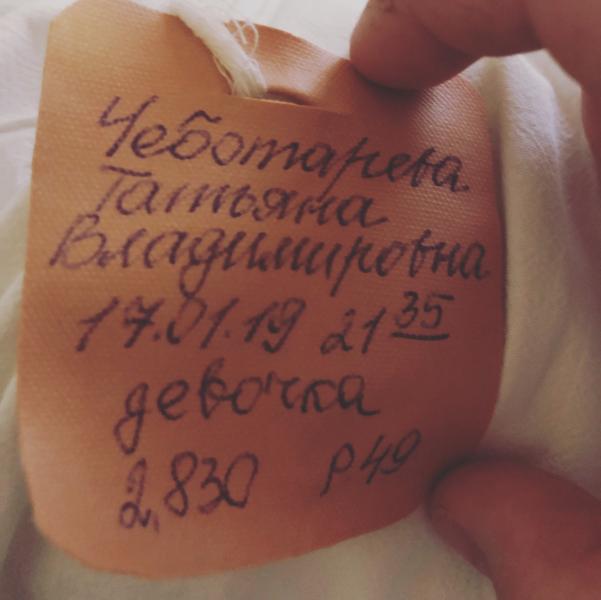 Чеботарева
Татьяна
Владимировна
17.01.19 21 35
девочка
2,830 р 49